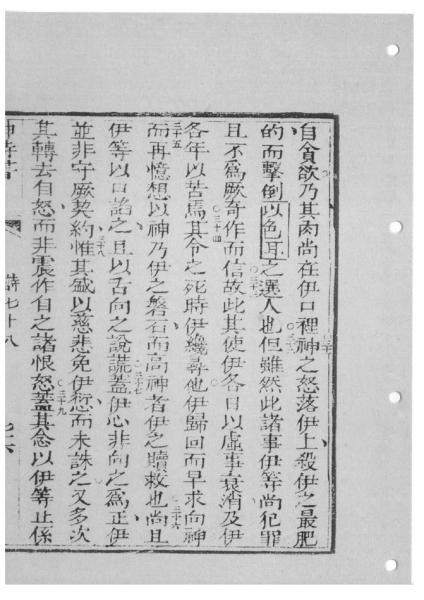 自貪欲乃其肉尚在伊口裡神之怒落伊上殺伊之最肥
的而擊倒以色耳之選人也但雖然此諸事伊等尚犯罪
且不爲厥奇作而信故此其使伊各日以虛事衰消及伊
各年以苦焉其令之死時伊纔尋他伊歸回而早求向神
而再憶想以神乃伊之磐石而高神者伊之贖救也尚且
伊等以口諂之且以舌向之說謊蓋伊心非向之爲正伊
並非守厥契約惟其盛以慈悲免伊愆而未誅之又多次
其轉去自怒而非震作自之諸恨怒蓋其念以伊等止係
詩七十八